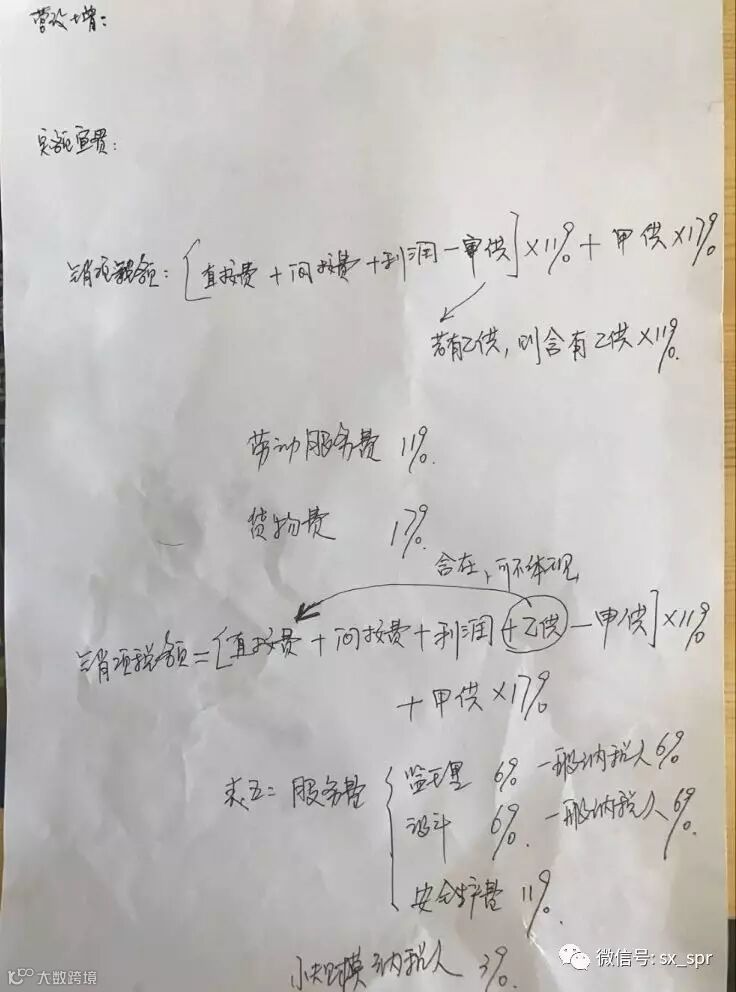 营改增:
实施宣贯:
销项税额: [直接费 + 间接费 + 利润 - 甲供] ×11% + 甲供 ×17%
若有乙供, 则含有乙供 ×11%.
劳动服务费 11%.
货物费 17%.
含在, 可不体现
销项税额 = [直接费 + 间接费 + 利润 + 乙供 - 甲供] ×11%
+ 甲供 ×17%
表五: 服务费
监理 6% 一般纳税人 6%
设计 6%. 一般纳税人 6%.
安全生产费 11%.
小规模纳税人 3%.
微信号: sx_spr
大数跨境